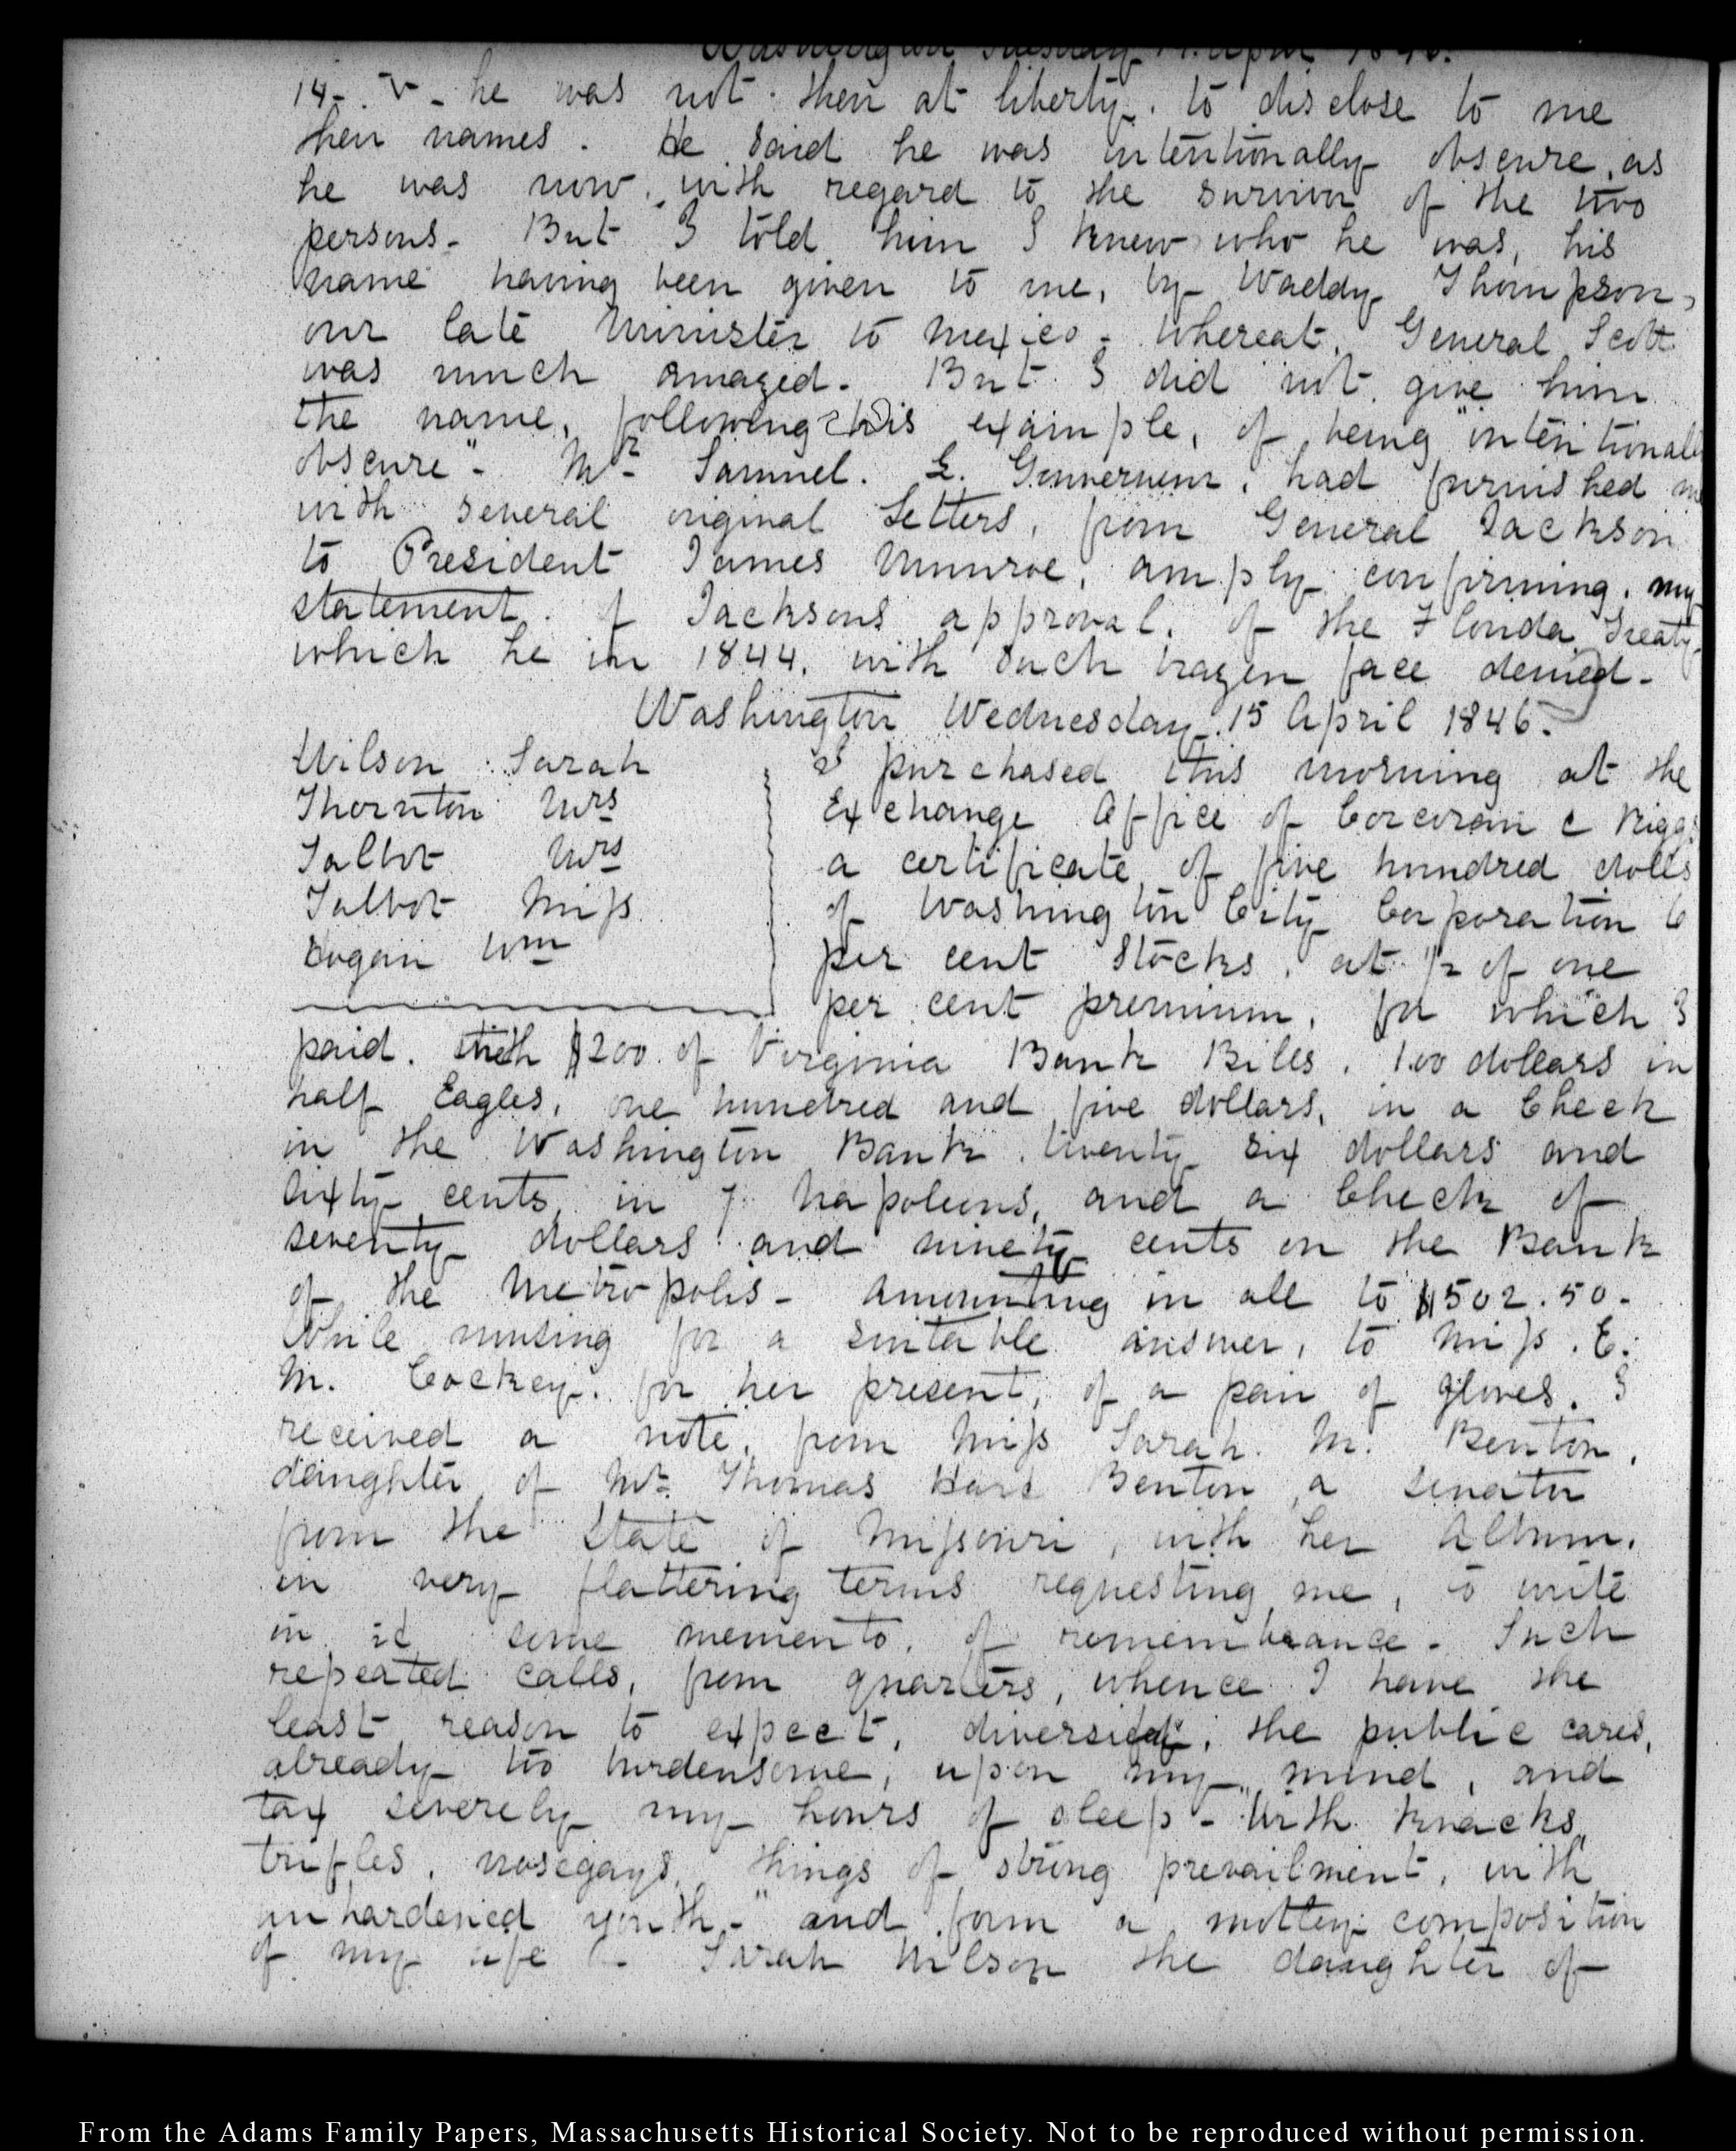 Washington Tuesday 14. April 1846.
14. V. he was not then at liberty, to disclose to me
their names. He said he was intentionally obscure, as
he was now, with regard to the survivor of the two
persons. But I told him I knew who he was, his
name having been given to me, by Waddy Thompson,
our late Minister to Mexico - whereat, General Scott
was much amazed. But I did not give him
the name, following his example, of being "intentionally
obscure" - Mr. Samuel. L. Gouverneur, had furnished me
with several original Letters, from General Jackson
to President James Munroe, amply confirming, my
statement. of Jacksons approval, of the Florida Treaty
which he in 1844. with such brazen face denied -
Washington Wednesday. 15 April 1846.
Wilson Sarah
Thornton Mrs
Talbot Mrs
Talbot Miss
Wm
I purchased this morning at the
Exchange Office of Corcoran & Riggs
a certificate of five hundred dolls
of Washington City Corporation 6
per cent Stocks, at 1/2 of one
per cent premium, for which I
paid. with $200. of Virginia Bank Bills, 100 dollars in
half Eagles, one hundred and five dollars, in a Check
in the Washington Bank. twenty six dollars and
sixty cents, in 7 Napoleons, and a Check of
seventy dollars and ninety cents on the Bank
of the Metropolis - amounting in all to $502.50.
While musing for a suitable answer, to Miss. E.
M. Cockey. for her present, of a pair of gloves. I
received a note, from Miss Sarah. M. Benton,
daughter of Mr. Thomas Hart Benton a Senator
from the State of Missouri, with her Album.
in very flattering terms requesting me, to write
in it some memento, of remembrance - Such
repeated calls, from quarters, whence I have the
least reason to expect, diversify, the public cares,
already too burdensome, upon my mind, and
tax severely my hours of sleep - "With knacks,
trifles, nosegays, things of strong prevailment, with
unhardened youth," and form a motley composition
of my life - Sarah Wilson the daughter of
From the Adams Family Papers, Massachusetts Historical Society. Not to be reproduced without permission.